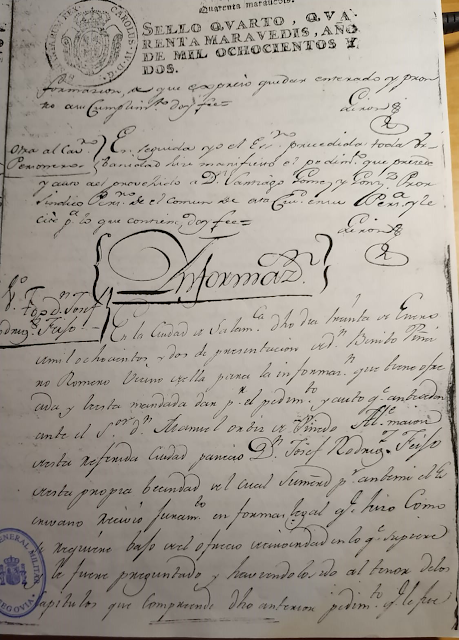 Quarenta maravedis.
SELLO QVARTO, QVA
RENTA MARAVEDIS, AÑO
DE MIL OCHOCIENTOS Y
DOS.
formacion, de que expreso quedar enterado y pron
to a su Cumplim.to doy fee=
Otra al Cav.ro
Personero
En seguida yo el Es.no precedida toda Ur
banidad hize manifiesto el pedim.to que precede
y auto a el provehido a D.n Santiago Gomez y Pron
Sindico Pers.o de el comun de esta Ciu.d en su Pers.a y le
cite p.a lo que contiene, doy fee=
Informaz.n
T.go D.n Josef
Rodrig.z Feiso
En la Ciudad de Salam.ca dho dia treinta de Enero
mil ochocientos y dos de presentacion de D.n Benito
no Romero Vecino de ella para la informaz.n que tiene ofre
cida, y se esta mandada dar p.r el pedim.to y auto q.e anteceden
ante el S.or D.n Manuel Ortiz de Pinedo Alc.e maior
de esta referida Ciudad parecio D.n Josef Rodrig.z Feiso
de esta propia Vecindad de el cual Su merced p.r ante mi el Es
crivano recivio juram.to en forma legal q.e hizo Como
se requiere bajo de el ofrecio decir verdad en lo q.e Supiere
le fuere preguntado y haviendolo sido al tenor de los
capitulos que Comprende dho anterior pedim.to q.e le fue
GENERAL MILITAR
SEGOVIA